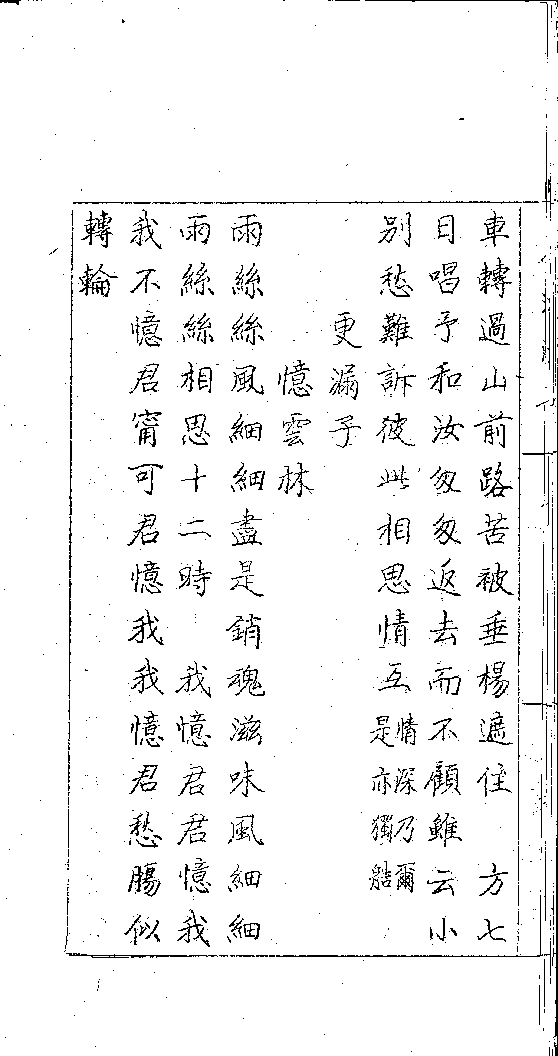 車轉過山前路苦被垂楊遮住　方七
日唱予和汝匆匆返去而不顧雖云小
別愁難訴彼此相思情互情深乃爾
是亦獨艁
更漏子
憶雲林
雨絲絲風細細盡是銷魂滋味風細細
雨絲絲相思十二時　我憶君君憶我
我不憶君甯可君憶我我憶君愁腸似
轉輪